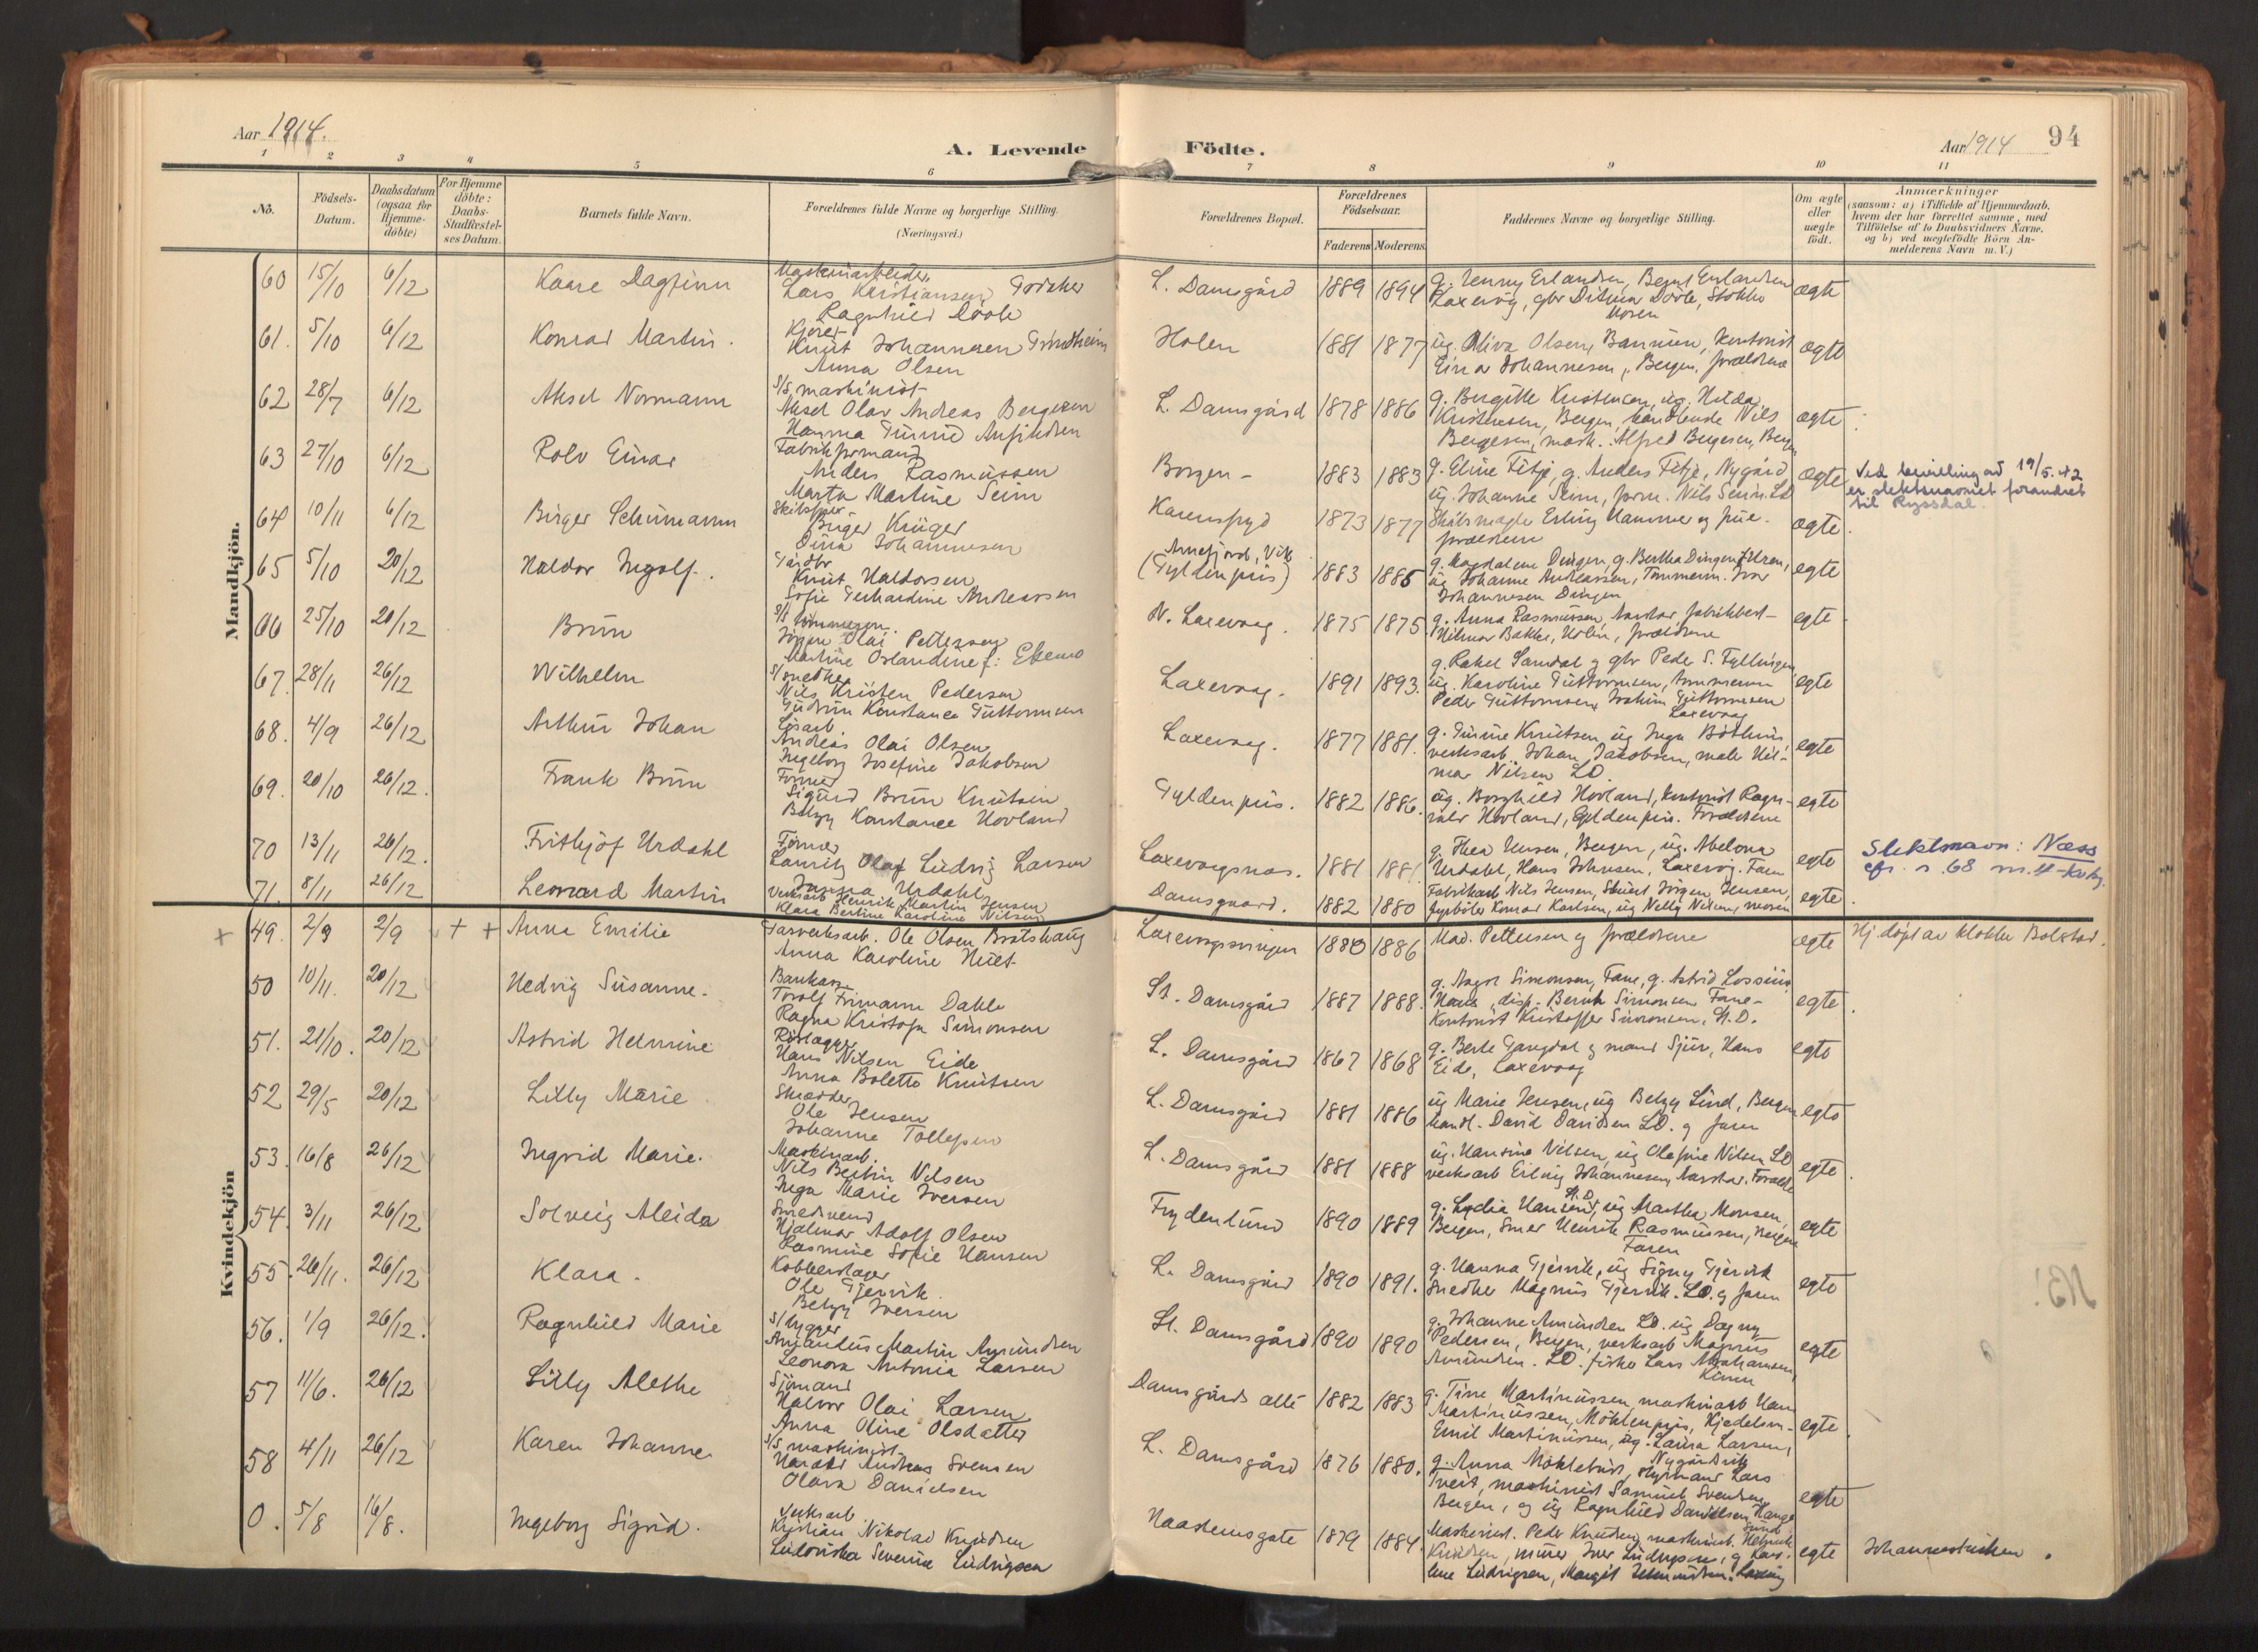 Aar 1914.
A. Levende Födte.
Aar 1914
94
1 2 3 4 5 6 7 8 9 10 11
No.
Födsels-
Datum.
Daabsdatum
(ogsaa for
Hjemme-
döbte)
For Hjemme
döbte:
Daabs-
Stadfæstel-
ses Datum.
Barnets fulde Navn.
Forældrenes fulde Navne og borgerlige Stilling.
(Næringsvei.)
Forældrenes Bopæl.
Forældrenes
Födselsaar.
Faderens Moderens
Faddernes Navne og borgerlige Stilling.
Om ægte
eller
uægte
födt.
Anmærkninger
(saasom: a) i Tilfælde af Hjemmedaab,
hvem der har forrettet samme, med
Tilföielse af to Daabsvidners Navne.
og b) ved uægtefödte Börn An-
melderens Navn m.V.)
Mandkjön.
60 15/10 6/12 Kaare Dagfinn
Maskinarbeider
Lars Kristiansen
Ragnhild
L. Damsgård 1889 1894
g. Jenny Erlandsen, Bernt Erlandsen
ægte
61. 5/10 6/12 Konrad Martin.
Knut Johannesen Trindheim
Anna Olsen
Holen 1881 1877
ug. Oliva Olsen, kontorist
Johannesen, Bergen, forældrene
ægte
62 28/7 6/12 Aksel Normann
S/S maskinist
Aksel Olav Andreas Bergesen
L. Damsgård 1878 1886
g. Birgitte Kristensen, ug. Hilda
Kristensen, Bergen, Nils
Bergesen, mask. Alfred Bergesen, Bergen
ægte
63 27/10 6/12 Rolv Einar
Fabrikformand
Anders Rasmussen
Marta Martine Seim
1883 1883
g. Eline Fitje, g. Anders Fitje, Nygård
ug. Johanne Seim, form. Nils Seim. LD
ægte
Ved bevilling av 19/5.42
er slektsnavnet forandret
til Ryssdal.
64 10/11 6/12 Birger Schumann
Birger Krüger
Dina Johannesen
Karensfryd 1873 1877
Skibsmægler Erling Hammer og frue.
forældrene
ægte.
65 5/10 20/12 Haldor Ingolf.
Gårdbr
Knut Haldorsen
Sofie Gerhardine Andreassen
Arnefjord, Vik
(Gyldenpris) 1883 1885
g. Magdalene Dingen, g. Bertha Dingen
ug Johanne Andreassen, Tømmerm. Ivar
Johannesen Dingen
egte
66 25/10 20/12 Brun
S/S tømmerm.
Jørgen Olai Pettersen
Martine Oslandine f:
N. Laxevaag. 1875 1875
g. Anna Rasmussen, Aarstad, fabrikbest-
Hilmar Bakke, Holen, forældrene
egte
67. 28/11 26/12 Wilhelm
S/nedker
Nils Kristen Pedersen
Gudrun Konstance Guttormsen
Laxevaag. 1891 1893.
g. Rakel Samdal g gbr Peder S. Fyllingen
ug. Karoline Guttormsen, tømmerm
Peder Guttormsen, Joakim Guttormsen
Laxevaag
egte
68. 4/9 26/12 Arthur Johan
Løsarb.
Andreas Olai Olsen
Ingeborg Josefine Jakobsen
Laxevaag. 1877 1881.
verksarb. Johan Jakobsen, maler Hil-
mar Nilsen LD.
egte
69. 20/10 26/12. Frank Brun
Sigurd Brun Knutsen
Betzy Konstance Hovland
Gyldenpris. 1882 1886.
ug. Borghild Hovland, kontorist Ragn-
vald Hovland, Gyldenpris. Forældrene
egte
70 13/11 26/12. Frithjof Urdahl
Lauritz Olaf Ludvig Larsen
Urdahl
Laxevaagsnes. 1881 1881.
g. Thea Jensen, Bergen, ug. Abelona
Urdahl, Hans Johnsen, Laxevåg. Faren
egte
Slektsnavn: Næss
cfr. s. 68
71. 8/11 26/12 Leonard Martin
Verksarb Henrik Martin Jensen
Klara Bertine Karoline Nilsen
Damsgaard. 1882 1880
Fabrikarb Nils Jensen, Jørgen Jensen,
fyrbøter Konrad Karlsen, ug Nelly Nilsen, moren
egte.
Kvindekjön
+ 49. 2/9 2/9 + + Anna Emilie
Garverksarb. Ole Olsen Bratshaug
Anna Karoline
Laxevaagsvingen 1880 1886
Mad. Pettersen og forældrene
egte
Hj. døpt av klokker Bolstad.
50 10/11. 20/12 Hedvig Susanne.
Bankass.
Torolf Frimann Dahle
Ragna Kristofa Simonsen
St. Damsgård 1887 1888.
g. Aagot Simonsen, Fane, g. Astrid Lossius
disp. Bernh Simonsen Fane-
kontorist Kristoffer Simonsen, St.D.
egte.
51. 21/10. 20/12 Astrid Helmine
Rørlægger
Hans Nilsen Eide
Anna Bolette Knutsen
L. Damsgård 1867 1868
Eide, Laxevaag
egte
52 29/5 20/12 Lilly Marie.
Skrædder
Ole Jensen
Johanne Tollefsen
L. Damsgård 1881 1886
ug Marie Jensen, ug Betzy Lind, Bergen
handl. David Davidsen LD. g faren
egte
53. 16/8 26/12 Ingrid Marie.
Maskinarb.
Nils Bertin Nilsen
Inga Marie Iversen
L. Damsgård 1881 1888
ug. Hansine Nilsen, ug Olefine Nilsen LD
verksarb Erling Johannesen, Aarstad. Forældre
egte.
54. 3/11 26/12 Solveig Aleida
Smedsvend
Hjalmar Adolf Olsen
Rasmine Sofie Hansen
Frydenlund 1890 1889
g. Lydia Hansen St. D, ug Martha Monsen,
Bergen, Smed Henrik Rasmussen, Bergen
Faren
egte
55. 26/11. 26/12 Klara.
Kobberslager
Ole Gjervik.
Betzy Iversen
L. Damsgård 1890 1891.
g. Hanna Gjervik, ug Signy Gjervik
Snedker Magnus Gjervik. LD. g faren
egte
56. 1/9 26/12. Ragnhild Marie
S/bygger
Amandus Martin Amundsen
Leonora Antonia Larsen
St. Damsgård 1890 1890
g. Johanne Amundsen LD. ug Dagny
Pedersen, Bergen, verksarb Magnus
Amundsen. LD. fisker Lars Abrahamsen,
egte
57 11/6. 26/12 Lilly Alethe
Sjømand
Halvor Olai Larsen
Anna Oline Olsdatter
Damsgårds allé 1882 1883
g. Tine Martinussen, maskinarb Hans
Martinussen, Möhlenpris, Kjedelsm-
Emil Martinussen, ug. Laura Larsen,
Nygårdsvik
egte
58 4/11 26/12 Karen Johanne
S/S maskinist
Harald Andreas Svensen
Olava Danielsen
L. Damsgård 1876 1880.
g. Anna Möklebust, styrmand Lars
Tveit, maskinist Samuel Svendsen
Bergen, og ug Ragnhild Danielsen Hauge
sund
egte
0. 5/8 16/8. Ingeborg Sigrid.
Verksarb.
Kristian Nikolai Knudsen
Ludovika Severine Ludvigsen
Naadensgate 1879 1884.
Maskinist. Peder Knudsen, maskinist. Henrik
Knudsen, murer Iver Ludvigsen, g
line Ludvigsen, Margit
egte
Johanneskirken.